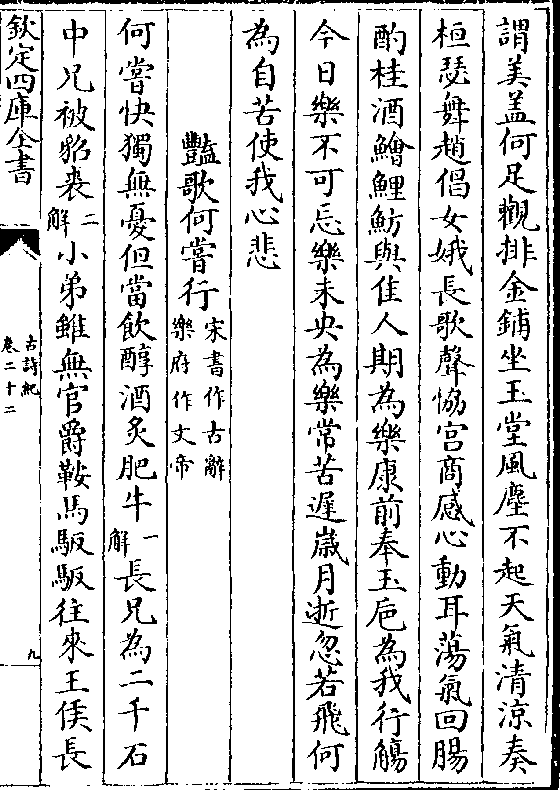 謂美蓋何足觀排金鋪坐玉堂風塵不起天氣清涼奏
桓瑟舞趙倡女娥長歌聲恊宫商感心動耳蕩氣回腸
酌桂酒鱠鯉魴與佳人期為樂康前奉玉巵為我行觴
今日樂不可忘樂未央為樂常苦遲嵗月逝忽若飛何
為自苦使我心悲
豔歌何嘗行宋書作古辭樂府作文帝
何嘗快獨無憂但當飲醇酒炙肥牛一解長兄為二千石
中兄被貂裘二解小弟雖無官爵鞍馬馺馺往來王侯長
欽定四庫全書
古詩紀
卷二十二
九